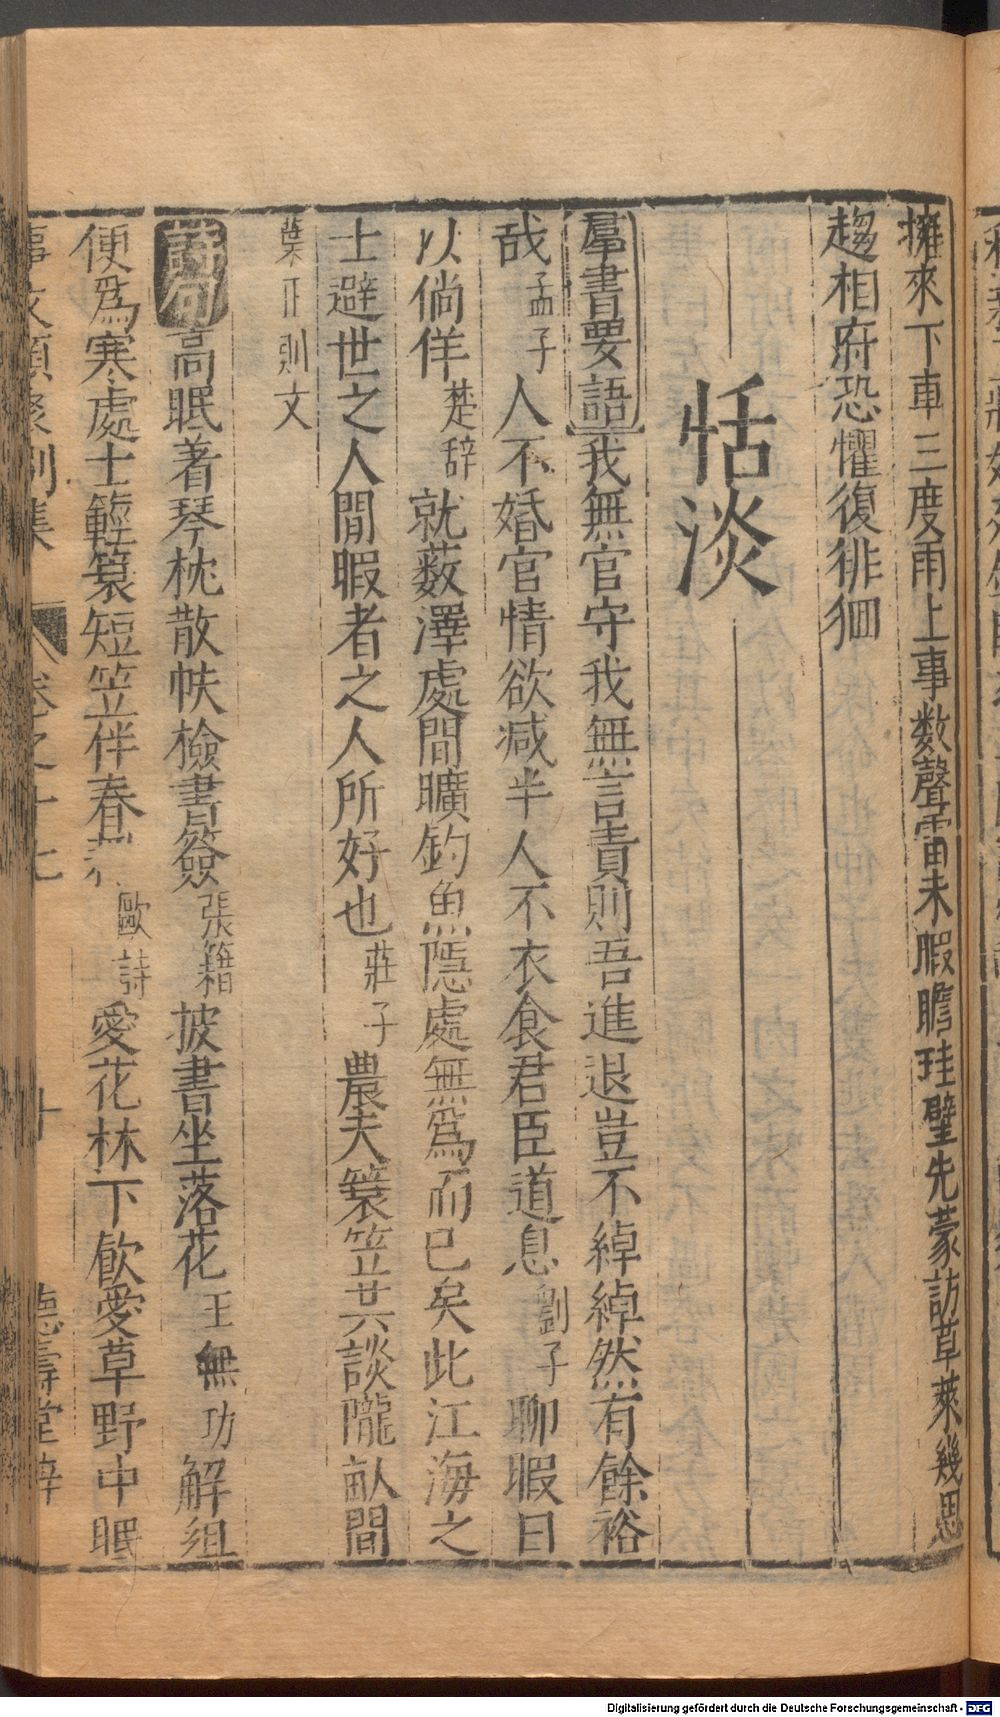 擁來下車三度甬上事数聲雷未暇瞻珪璧先蒙訪草萊幾思
趨相府恐懼復徘徊
恬淡
羣書要語我無官守我無言責則吾進退豈不綽綽然有餘裕
哉孟子人不婚官情欲减半人不衣食君臣道息劉子聊暇日
以倘佯楚辞就薮澤處閒曠釣魚隱處無爲而已矣此江海之
士避世之人閒暇者之人所好也莊子農夫簑笠共談隴畝間
葉正則文
詩句高眠着琴枕散帙檢書簽張籍披書坐落花王無功解組
便爲寒處士輕簑短笠伴春 歐詩愛花林下飲愛草野中眠
事文類聚別集 卷之十七 十 德壽堂梓
Digitalisierung gefördert durch die Deutsche Forschungsgemeinschaft - DFG